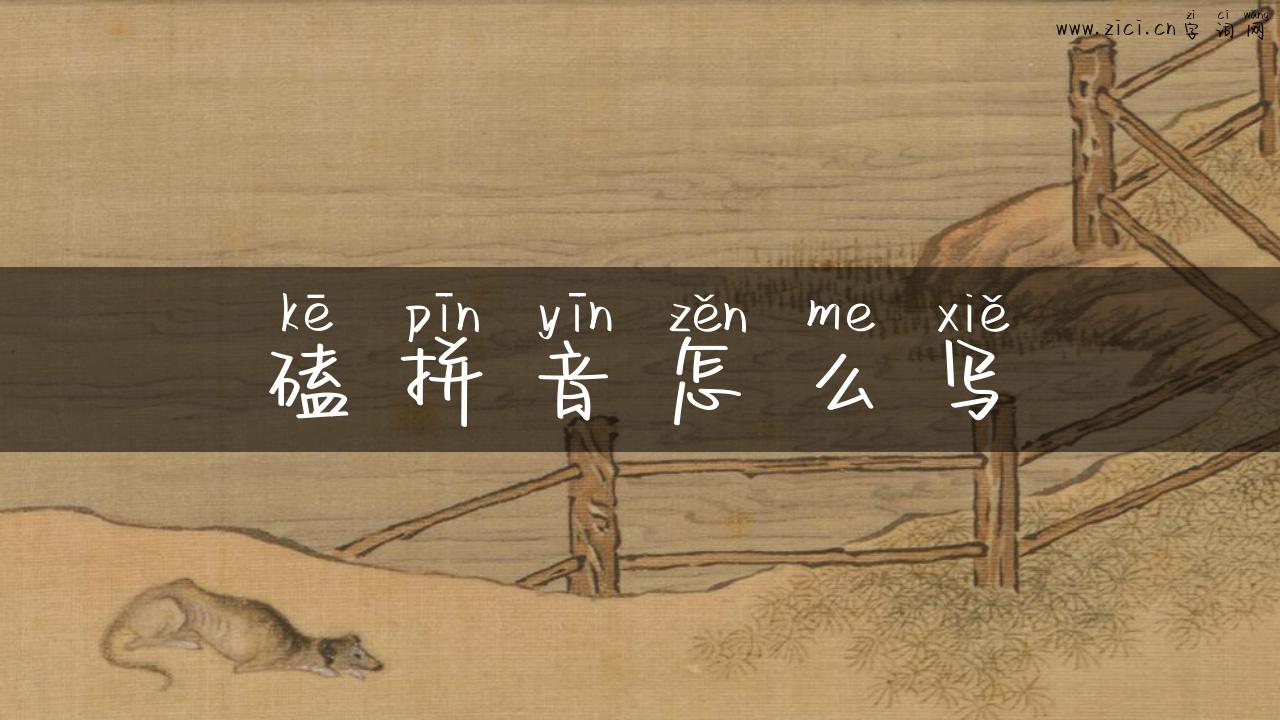 zì cí wang
www.zici.cn 字词网
kē pīn yīn zěn me xiě
磕拼音怎么写